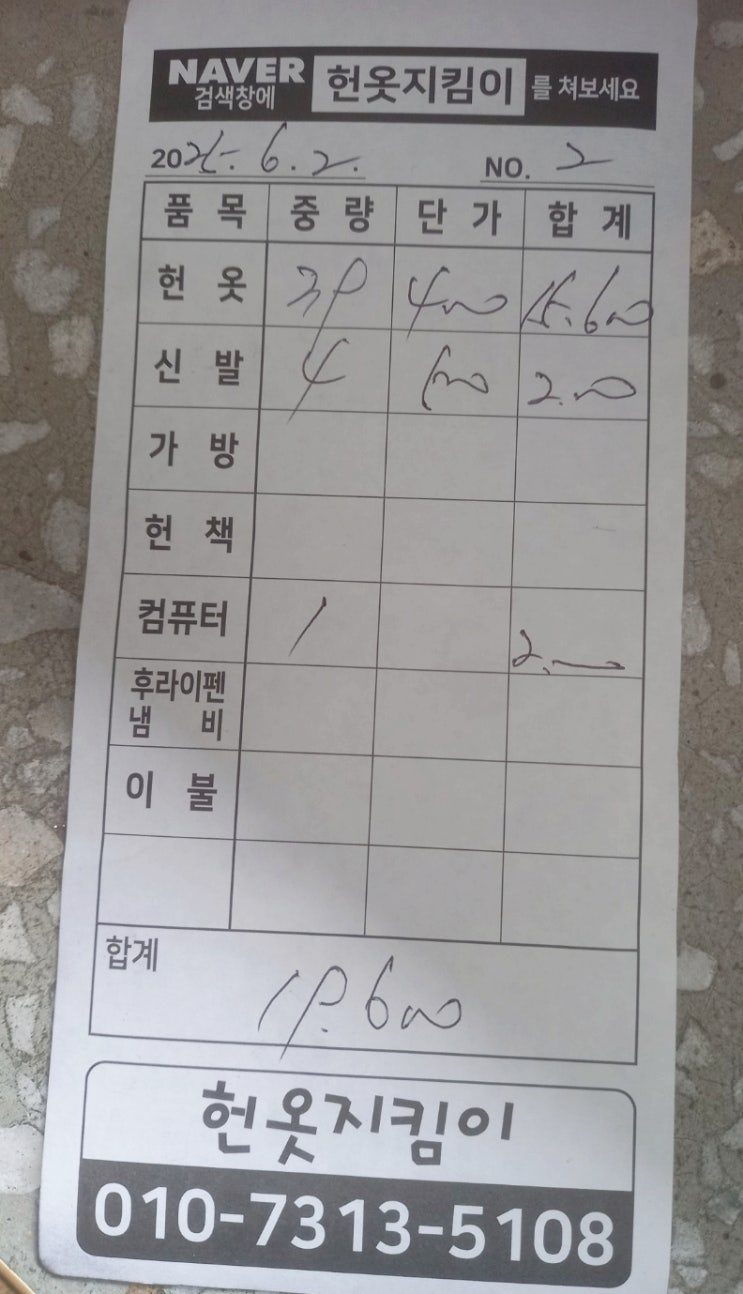 NAVER 검색창에 헌옷지킴이 를 쳐보세요
2025. 6. 2. NO. 2
품목 중량 단가 합계
헌옷 39 400 15.600
신발 4 2.00
가방
헌책
컴퓨터 1
후라이펜
냄비
이불
합계
19.600
헌옷지킴이
010-7313-5108